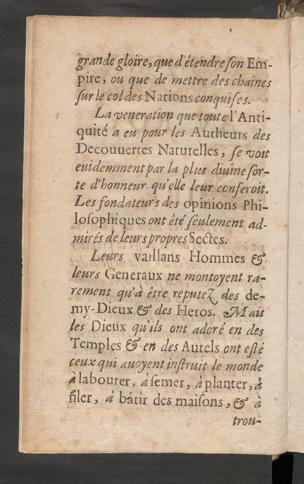 grande gloire, que d'étendre son Em-
pire, ou que de mettre des chaines
sur le col des Nations conquises.
La veneration que toute l'Anti-
quité a eu pour les Autheurs des
Decouvertes Naturelles, se voit
evidemment par la plus divine sor-
te d'honneur qu'elle leur conferoit.
Les fondateurs des opinions Phi-
losophiques ont été seulement ad-
mirés de leurs propres Sectes.
Leurs vaillans Hommes &
leurs Generaux ne montoyent ra-
rement qu'à être reputez des de-
my-Dieux & des Heros. Mais
les Dieux qu'ils ont adoré en des
Temples & en des Autels ont esté
ceux qui avoyent instruit le monde
à labourer, à semer, à planter, à
filer, à bâtir des maisons, & à
trou-